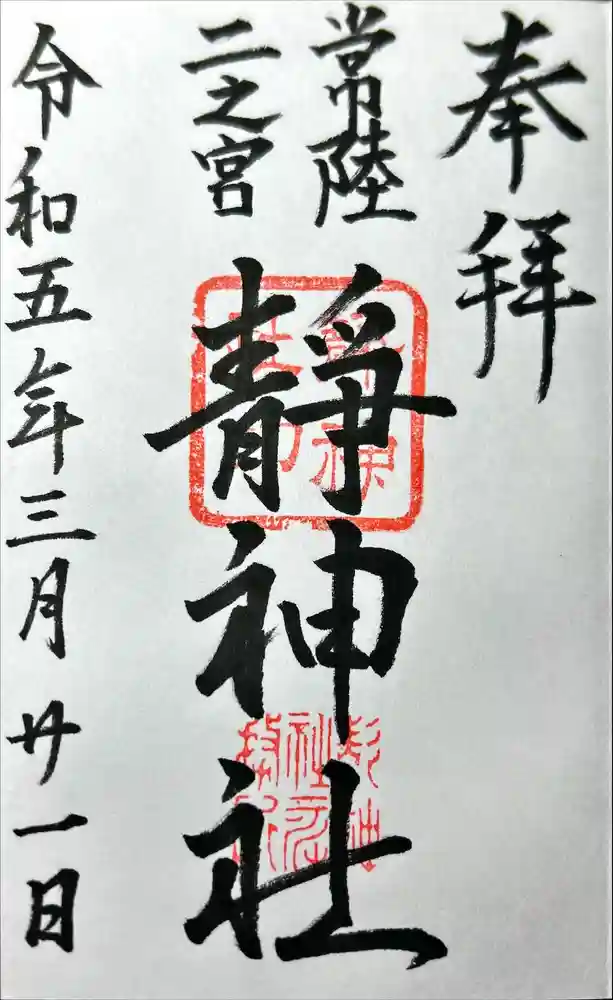 奉拝
常陸
二之宮
靜神社
令和五年三月廿一日